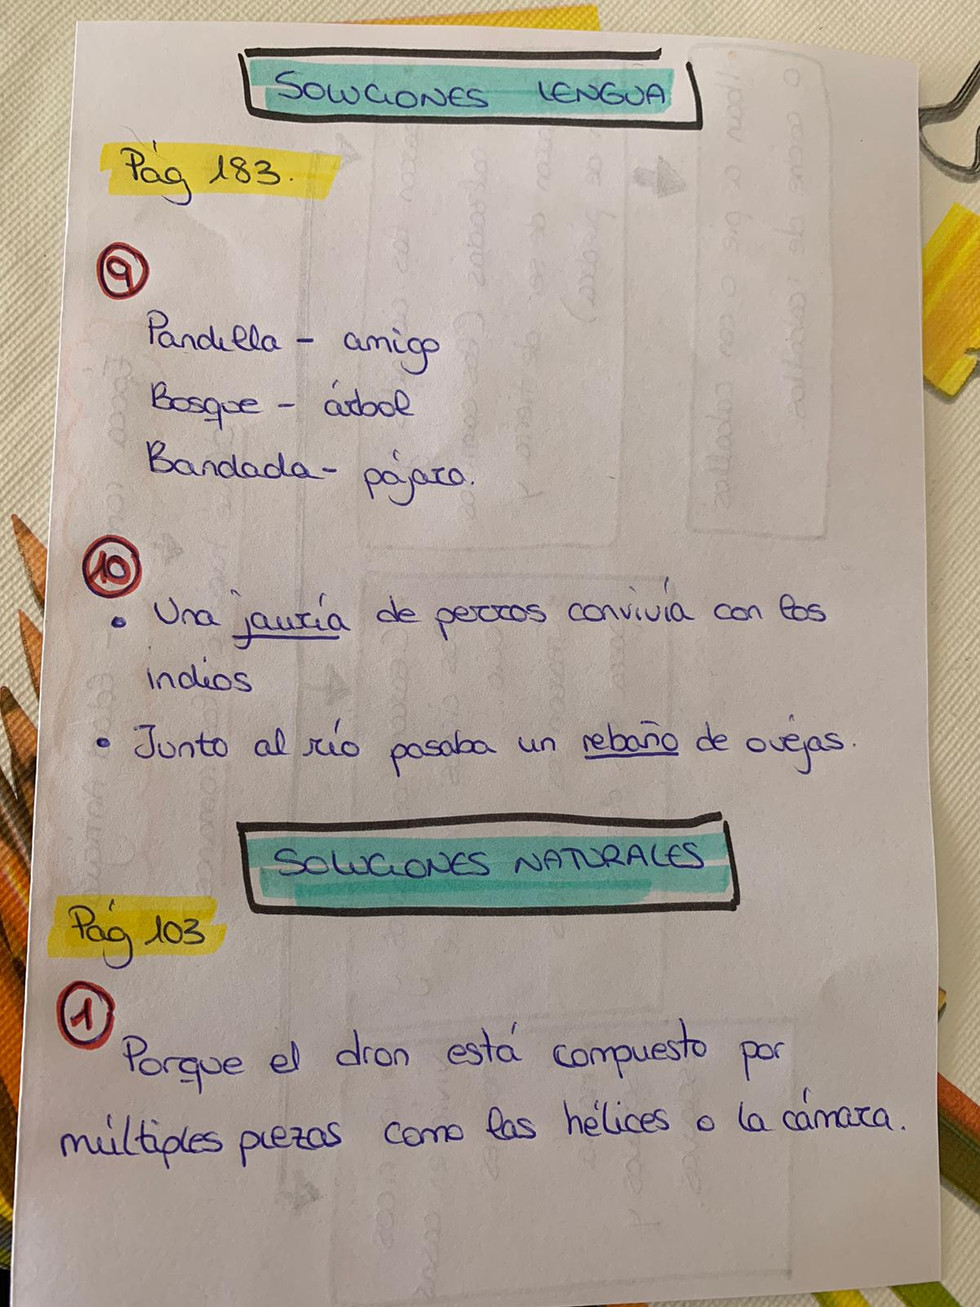 SOLUCIONES LENGUA
Pág 183.
9
Pandilla - amigo
Bosque - árbol
Bandada - pájaro.
10
• Una jauría de perros convivía con los
indios
• Junto al río pasaba un rebaño de ovejas.
SOLUCIONES NATURALES
Pág 103
1
Porque el dron está compuesto por
múltiples piezas como las hélices o la cámara.